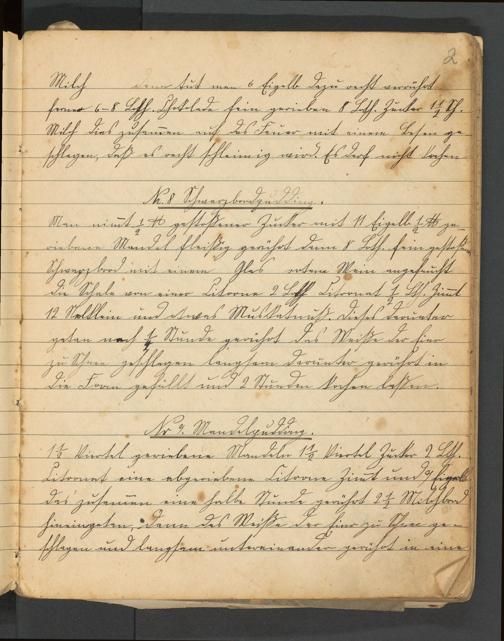 2
Milch dann tut man 6 Eigelb dazu recht verrührt
ferner 6-8 Loth Chokolade fein gerieben 8 Lth. Zucker 1½ Sch.
Milch dies zusammen auf das Feuer mit einem Besen ge-
schlagen, daß es recht schleimig wird. Es darf nicht kochen
No. 8 Schwarzbrodpudding.
Man nimt ½ ℔ gestoßener Zucker mit 11 Eigelb ½ ℔ ge-
riebene Mandel fleißig gerührt dann 8 Lth. fein gestoßen
Schwarzbrod mit einem Glas rotem Wein angefeucht
die Schale von einer Citrone 2 Loth Citronat ½ Lth Zimt
12 Nelklein und etwas Muskatnuß. Dieses darunter
getan noch ½ Stunde gerührt das Weiße der Eier
zu Schnee geschlagen langsam darunter gerührt in
die Form gefüllt und 2 Stunden kochen lassen.
Nr 9. Mandelpudding.
1½ Viertel geriebene Mandeln 1½ Viertel Zucker 2 Lth.
Citronat eine abgeriebene Citrone Zimt und Eigelb
das zusammen eine halbe Stunde gerührt 2½ Milchbrod
hineingetan, dann das Weiße der Eier zu Schnee ge-
schlagen und langsam untereinander gerührt in eine